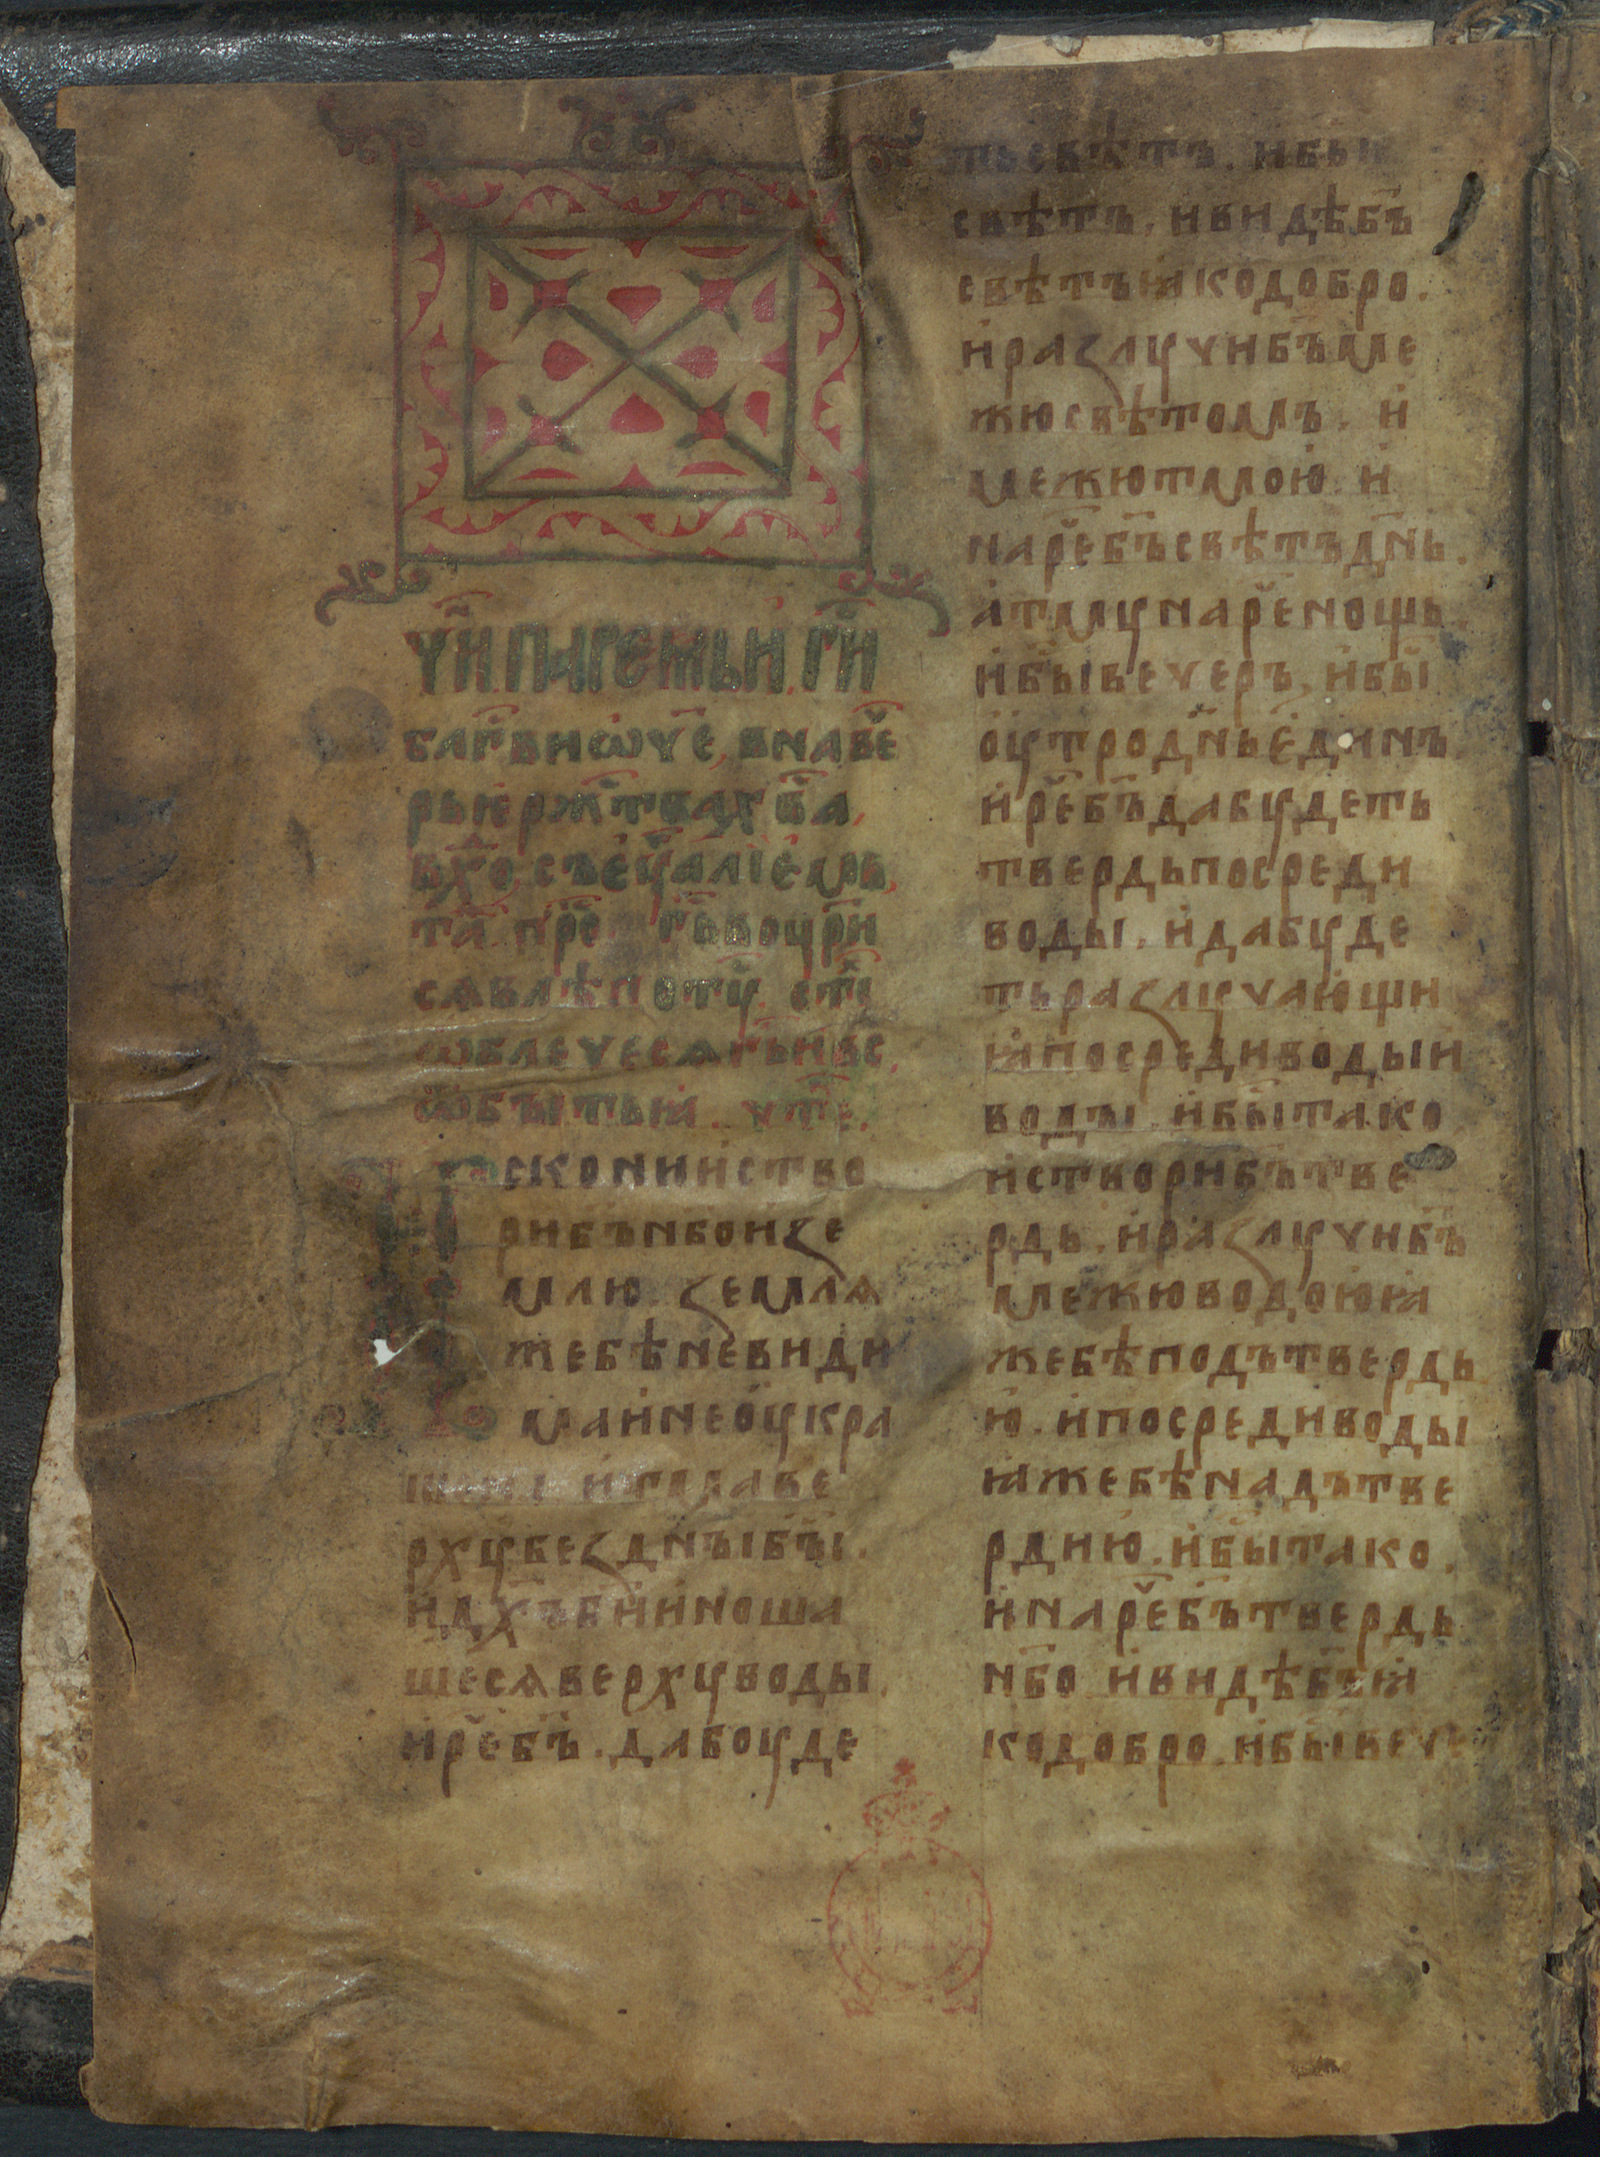 чн҃и. паремьи. гн҃и
блг҃ви ѡч҃е, в наве҃
рьи ржт҃ва хв҃а,
вхо҃, съ еу҃аліемь,
та҃. пр҃е гь҃ воцр҃и
сѧ в лѣпоту҃. сти҃
ѡблечесѧ гь҃ и вс,
ѿ бъітьꙗ. чте҃.
Искони и ство
ри бъ҃ нб҃о и зе
млю. землѧ
же бѣ невиди
ма и не оукра
шена. и тма ве
рху бездны бы҃.
и дх҃ъ бж҃ии ноша
шесѧ верху воды.
и ре҃ бъ҃. да боуде
ть свѣтъ. и бы
свѣтъ. и видѣ бъ҃
свѣтъ ꙗко добро.
и разлучи бъ҃ ме
жю свѣтомъ. и
межю тмою. и
наре҃ бъ҃ свѣтъ дн҃ь.
а тму наре҃ нощь.
и бы҃ вечеръ, и бы҃
оутро дн҃ь единъ
и ре҃ бъ҃ да будеть
твердь посреди
воды. и да буде
ть разлучающи
ꙗ посреди воды и
воды. и бы҃ тако
и створи бъ҃ тве
рдь. и разлучи бъ҃
межю водою ꙗ
же бѣ подъ твердь
ю. и посреди воды
ꙗже бѣ надъ тве
рдию. и бы҃ тако.
и наре҃ бъ҃ твердь
нб҃о и видѣ бъ҃ ꙗ
ко добро. и бы҃ вече